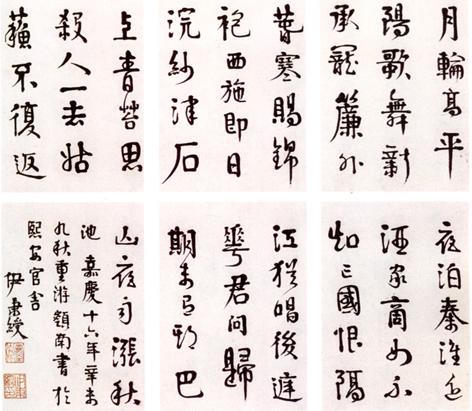 月輪高平
陽歌舞新
承寵簾外
萅寒賜錦
袍西施即日
浣紗津石
上青苔思
殺人一去姑
蘇不復返
夜泊秦淮近
酒家商女不
知亡國恨隔
江猶唱後庭
華君問歸
期未有期巴
山夜雨漲秋
池 嘉慶十六年辛未
九秋重游嶺南書於
熙安官舍
伊秉綬